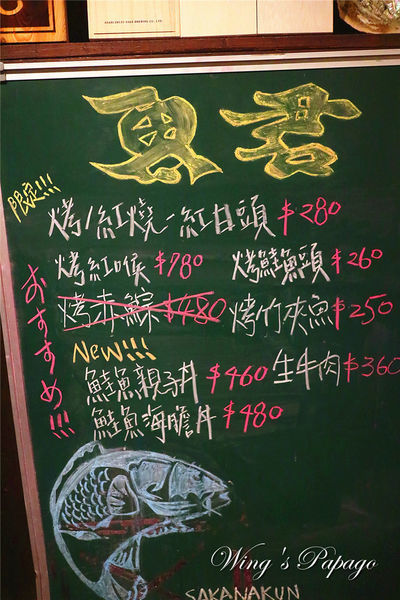 魚君
限定!!!
烤/紅燒-紅目頭 $280
烤紅喉 $780
烤鮭魚頭 $260
烤赤鯮 $480
烤竹夾魚 $250
おすすめ!!!
New!!!
鮭魚親子丼 $460
生牛肉 $360
鮭魚海膽丼 $480
SAKANAKUN
Wing's Papago